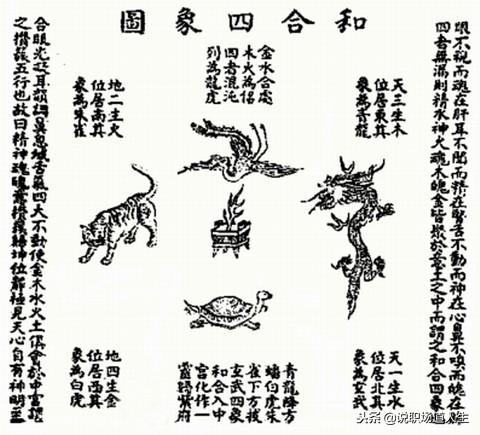 和合四象圖
眼不視而魂在肝耳不聞而精在腎舌不動而神在心鼻不嗅而魄在肺
四者無漏則精水神火魂木魄金皆聚於意土之中而謂之和合四象
天三生木
位居東其
象為青龍
金水合處
木火為侶
四者混沌
列為龍虎
地二生火
位居南其
象為朱雀
天一生水
位居北其
象為玄武
青龍降方
蟠白虎朱
雀下方拔
玄武四象
和合入中
宮化作一
靈歸紫府
地四生金
位居西其
象為白虎
合眼光凝耳韻調鼻息緘舌氣四大不動使金木水火土俱會於中宮謂
之攢簇五行也故曰精神魂魄意攢簇歸坤位靜極見天心自有神明至
头条 @说职场道人生